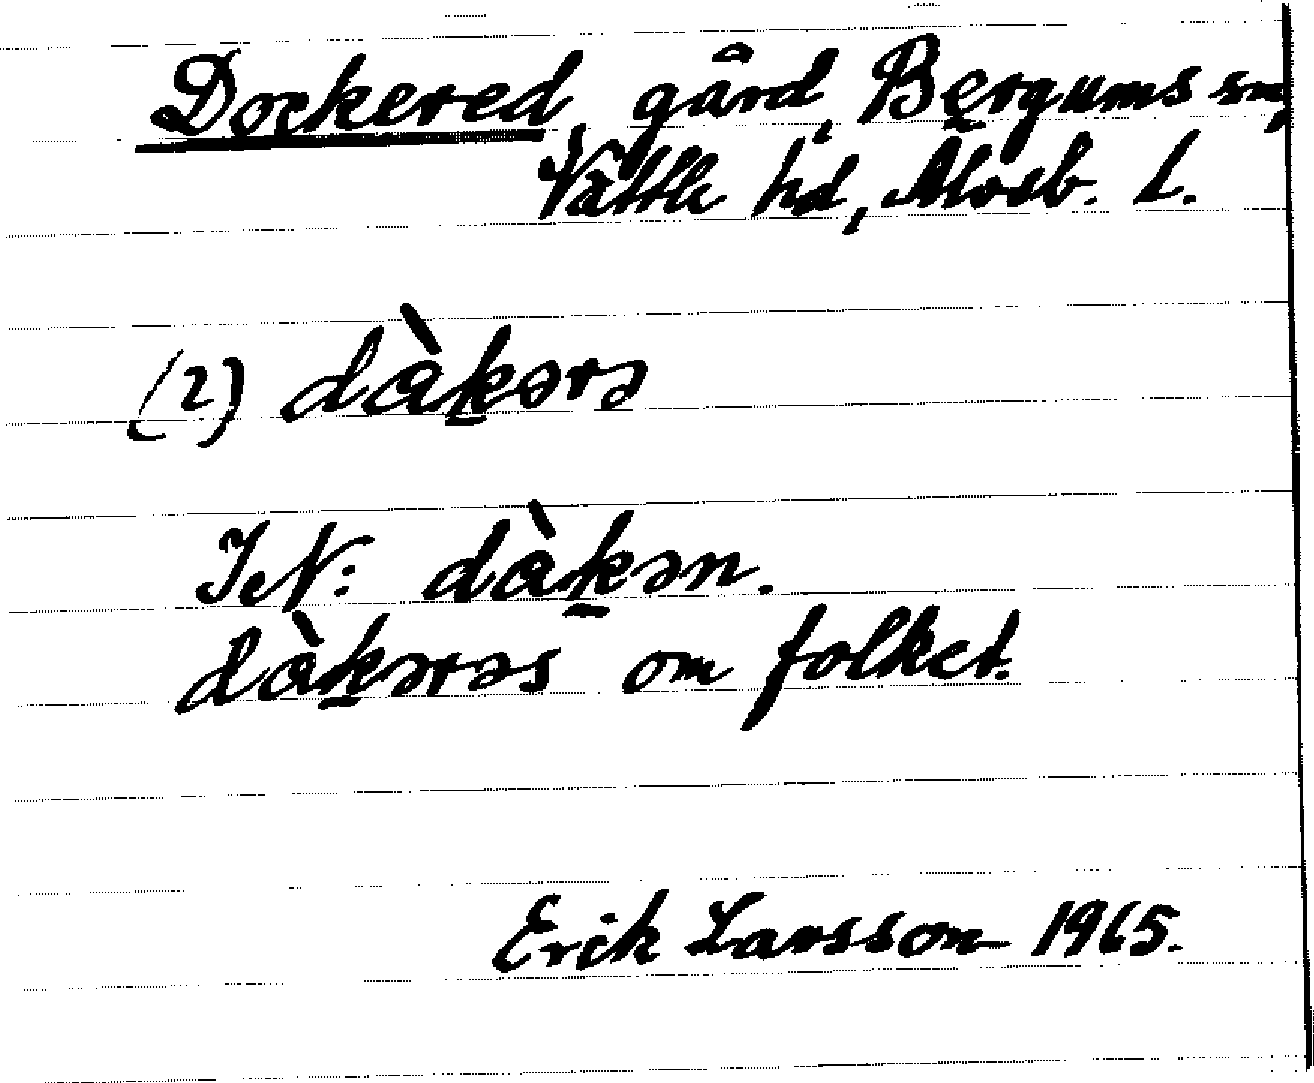 Dockered, gård, Bergums sn,
Vättle hd, Älvsb. L.
(2) dàkərə
JeN: dàkən.
dàkərəs om folket.
Erik Larsson 1965.